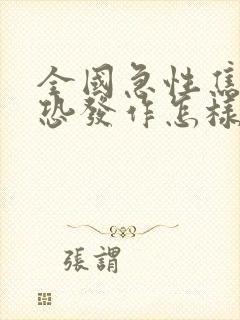 全國急性焦
恐發作怎樣
張謂